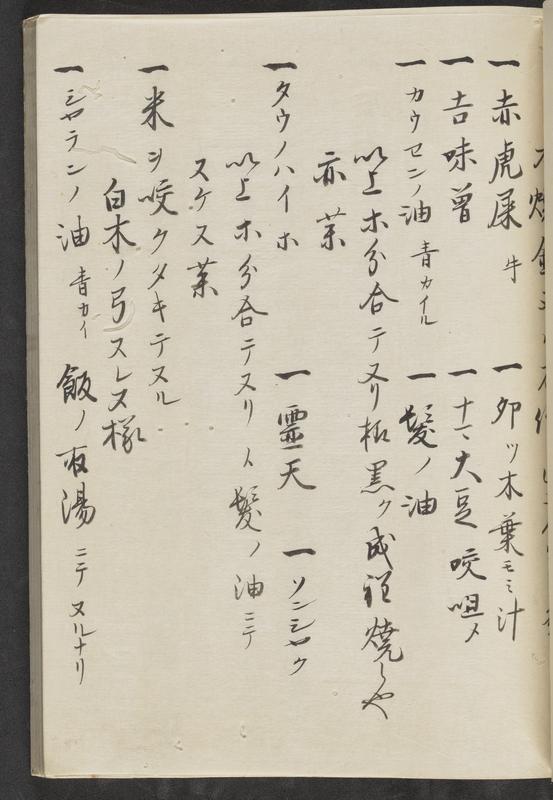 一 赤虎屎 牛 一 卯ツ木葉モミ汁
一 古味曾 一 十一 大豆咬咀メ
一 カウセンノ油 青カイル 一 髪ノ油
以上ホ分合テヌリ極黒ク成程焼しや
亦葉
一 タウノハイホ 一 霊天 一 ソンシヤク
以上ホ分合テスリ 人髪ノ油ニテ
スケス葉
一 米ヲ咬クダキテヌル
白木ノ弓スレヌ様
一 シヤテンノ油 青カイ 飯ノ取湯ニテヌルナリ